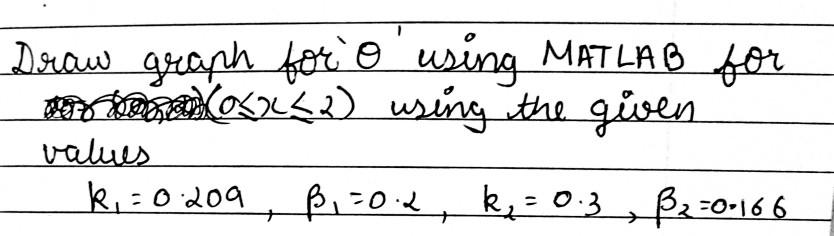 Draw graph for 'θ' using MATLAB for
(0≤x≤2) using the given
values
k₁ = 0.209, β₁ = 0.2, k₂ = 0.3, β₂ = 0.166